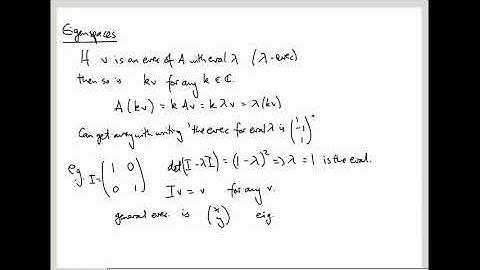 Eigenspaces
If v is an evec of A with eval λ (λ-evec)
then so is kv for any k ∈ ℂ.
A(kv) = kAv = kλv = λ(kv)
Can get away with writing 'the evec for eval λ is (1 -1 1)"
eg. I = (1 0 0 1) det(I-λI) = (1-λ)² => λ = 1 is the eval.
Iv = v for any v.
general evec. is (x y) eig